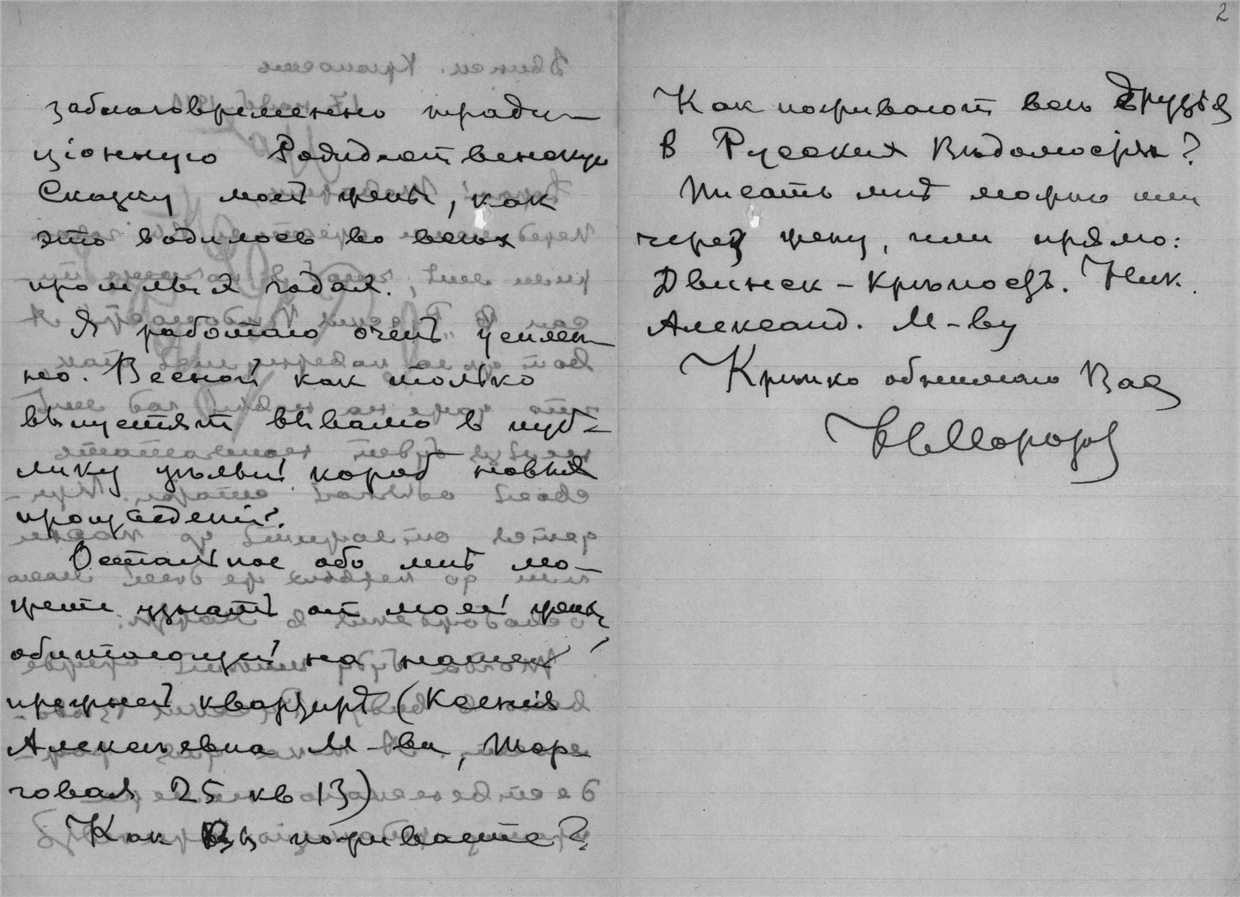 2
заблаговременно тради-
ціонную Рождественскую
Сказку моей женѣ, как
это водилось во всѣх
прошлых годах.
Я работаю очень усилен-
но. Весной как только
выпустят вывалю в пуб-
лику цѣлый короб новых
произведеній.
Остальное обо мнѣ мо-
жете узнать от моей жены,
обитающей на нашей
прежней квартирѣ (Ксенія
Алексѣевна М-ва, Торго-
говая 25 кв 13)
Как Вы поживаете?
Как поживают всѣ друзья
в Русских Вѣдомостях?
Писать мнѣ можно или
через жену, или прямо:
Двинск – Крѣпость. Ник.
Александ. М-ву
Крѣпко обнимаю Вас
Н Морозов